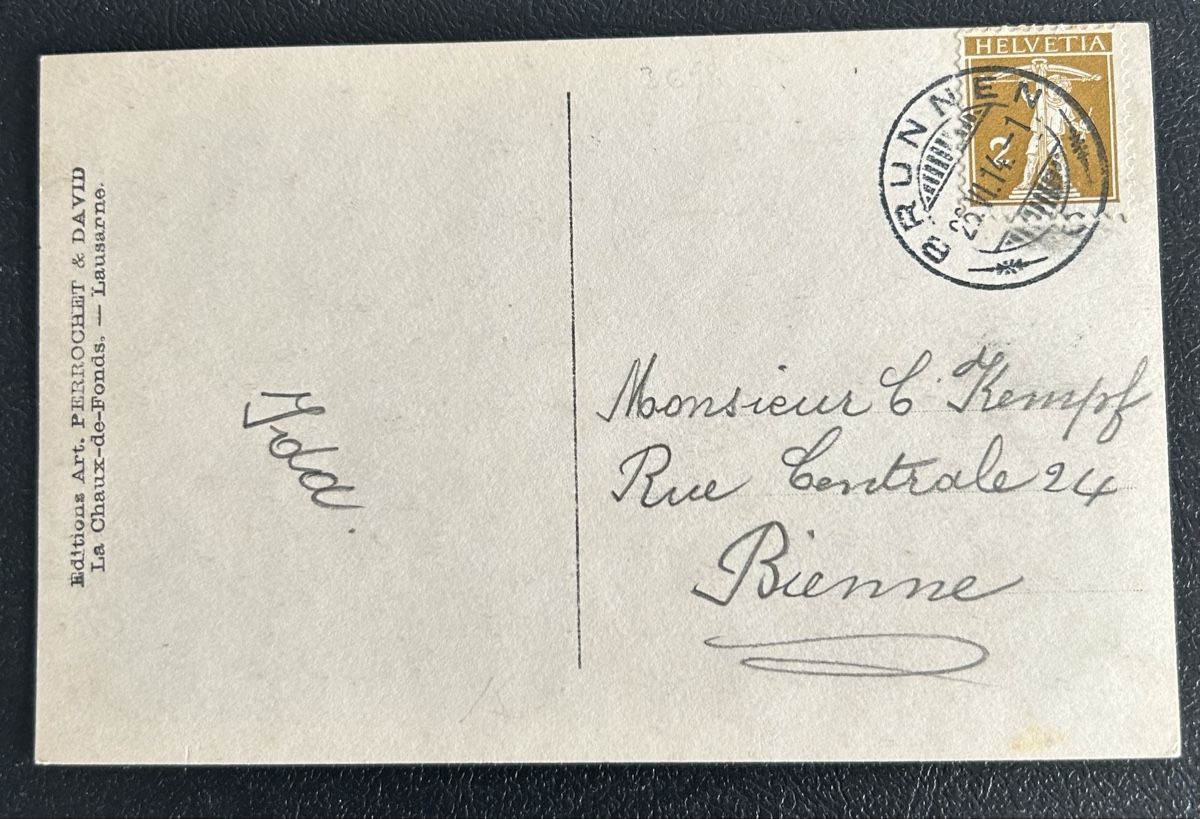 Editions Art. PERROCHET & DAVID
La Chaux-de-Fonds. — Lausanne.
HELVETIA
2
BRUNNEN
26.VI.14-1
Monsieur C Kempf
Rue Centrale 24
Bienne
Ida.